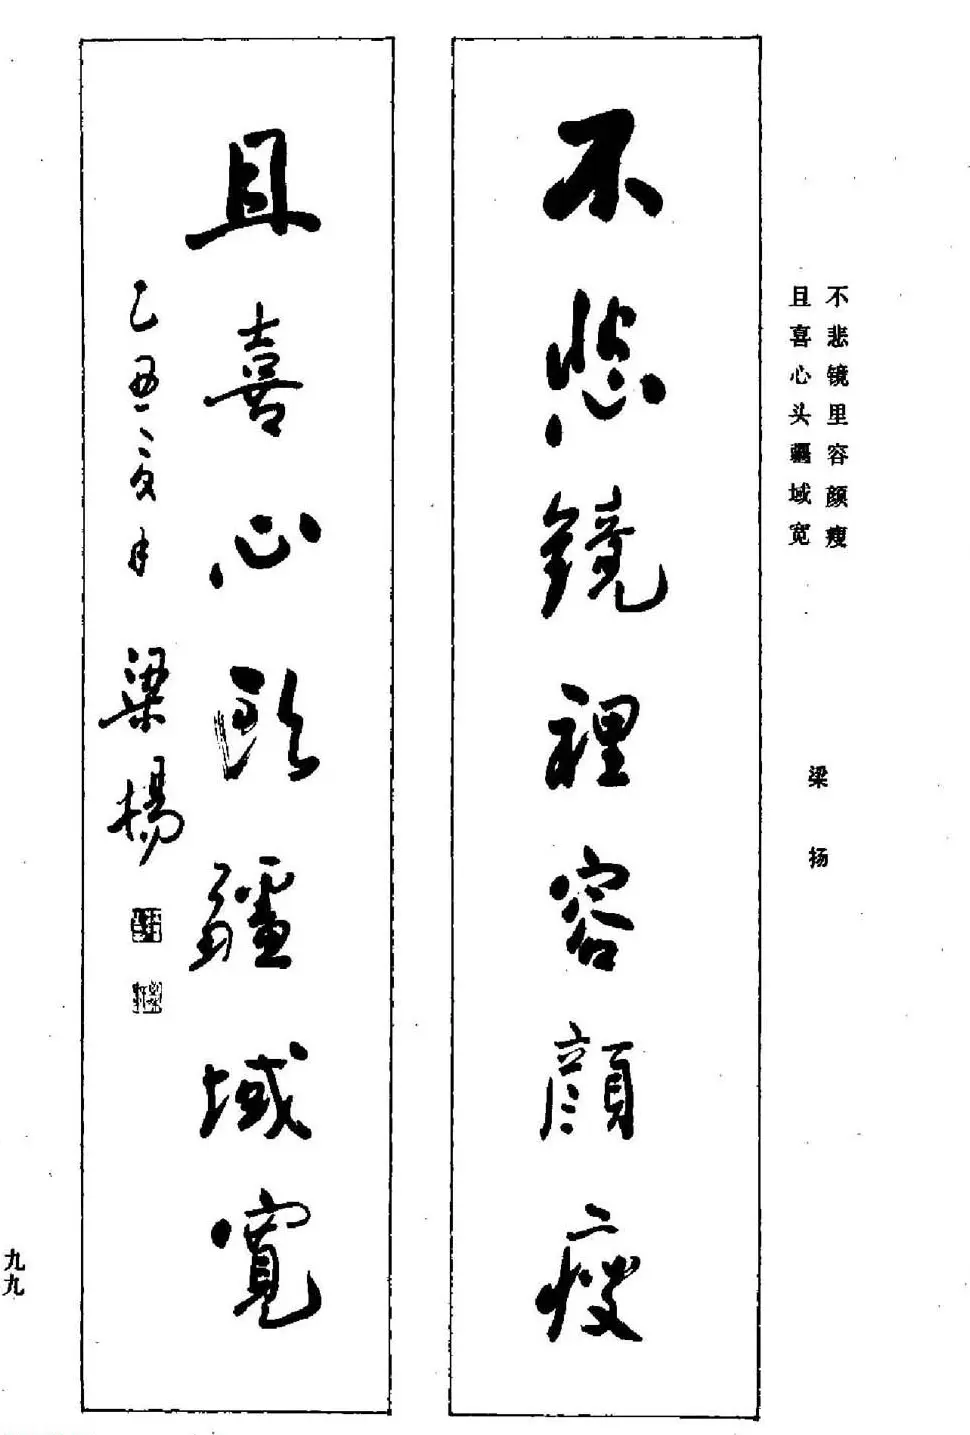 不悲镜里容颜瘦
且喜心头疆域宽
梁扬
不悲鏡裡容顔瘦
且喜心头疆域寬
乙丑二月
梁楊
九九